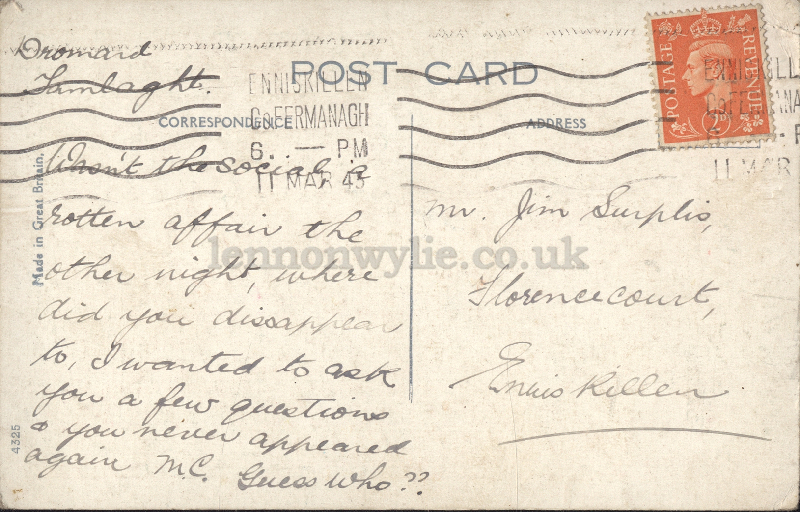 Dromard
Tamlaght.
POST CARD
ENNISKILLEN
Co. FERMANAGH
6. — PM
11 MAR 43
CORRESPONDENCE
ADDRESS
POSTAGE
REVENUE
ENNISKILL
Co. FERMANA
11 MAR
Made in Great Britain.
Wasn't the Social, a
rotten affair the
other night, where
did you dissappear
to, I wanted to ask
you a few questions
& you never appeared
again M.C. Guess Who??
4325
Mr. Jim Surplis,
Florencecourt,
Enniskillen
lennonwylie.co.uk